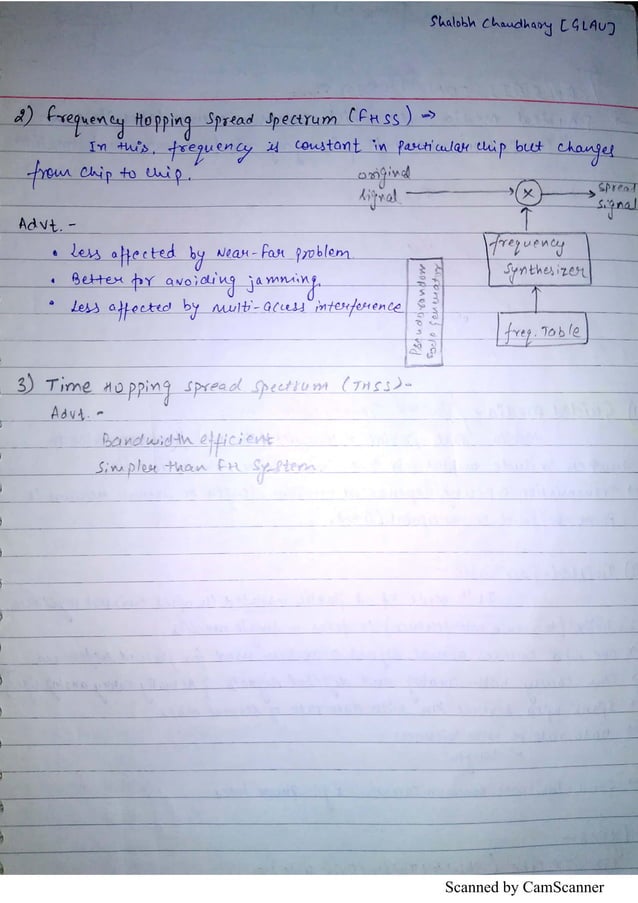 Shalabh Chaudhary [GLAU]
2) Frequency Hopping Spread Spectrum (FHSS) →
In this, frequency is constant in particular chip but changes
from chip to chip.
original
signal
×
spread
signal
Advt. -
• Less affected by Near-far problem
• Better for avoiding jamming.
• Less affected by multi-access interference
frequency
Synthesizer
freq. Table
Pseudorandom
Code Generator
3) Time Hopping Spread Spectrum (THSS)-
Advt. -
Bandwidth efficient
Simpler than FH System.
Scanned by CamScanner